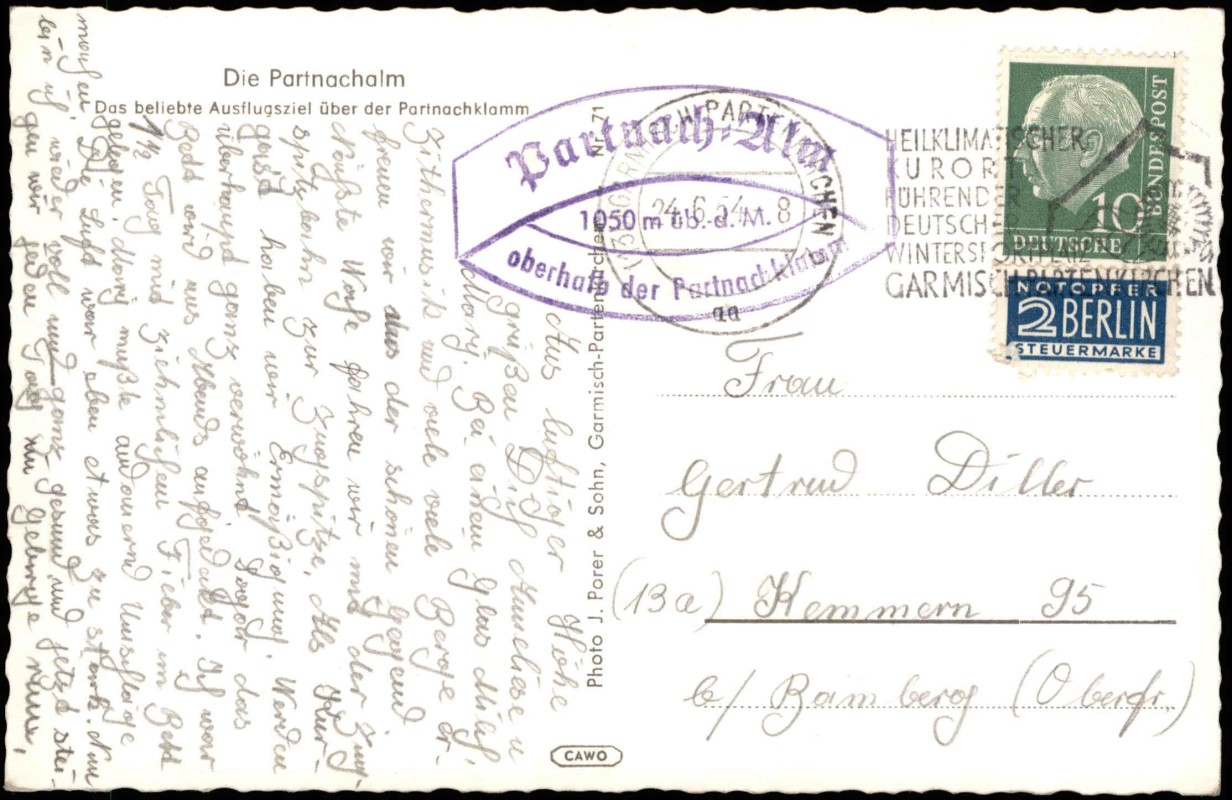 Die Partnachalm
Das beliebte Ausflugsziel über der Partnachklamm
Aus luftiger Höhe
grüßen Dich Anneliese u
Mary. Bei einem Glas Milch,
Zithermusik und viele viele Berge er-
freuen wir uns der schönen Gegend
Nächste Woche fahren wir mit der Zug-
spitzbahn zur Zugspitze. Als Kur-
gäste haben wir Ermäßigung. Werden
überhaupt ganz verwöhnt sogar das
Bett wird uns Abends aufgedeckt. Ich war
1½ Tag mit ziehmlichen Fieber im Bett
gelegen, Mary mußte andauernd Umschläge
machen. Die Luft war eben etwas zu stark. Nun
bin ich wieder voll und ganz gesund und jetzt stei-
gen wir jeden Tag im Gebirge rum.
Photo J. Porer & Sohn, Garmisch-Partenkirchen Nr. 71
CAWO
Partnach-Alm
1050 m üb. d. M.
oberhalb der Partnachklamm
(13b) GARMISCH-PARTENKIRCHEN
24.6.54.-8
aa
HEILKLIMATISCHER
KURORT
FÜHRENDER
DEUTSCHER
WINTERSPORTPLATZ
GARMISCH-PARTENKIRCHEN
10
DEUTSCHE
BUNDESPOST
NOTOPFER
2 BERLIN
STEUERMARKE
Frau
Gertrud Diller
(13a) Kemmern 95
b/ Bamberg (Oberfr.)